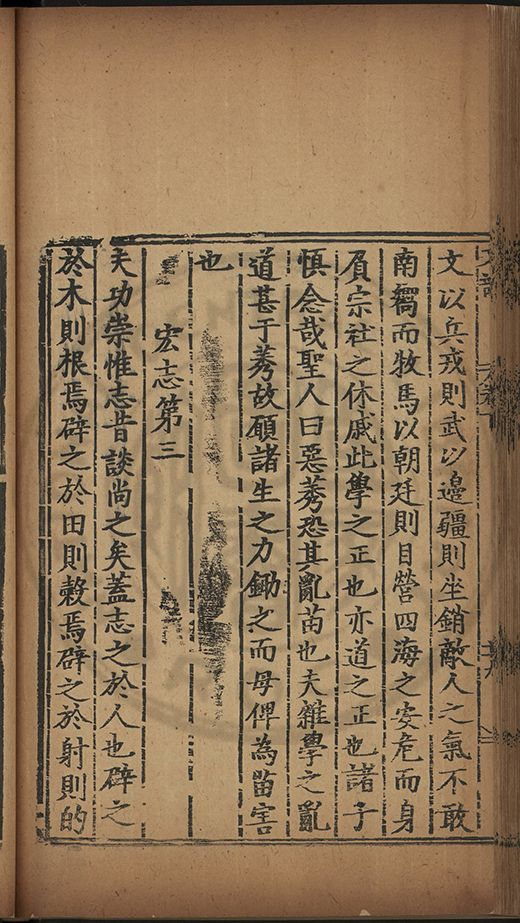 文以兵戎則武以邊疆則坐銷敵人之氣不敢
南嚮而牧馬以朝廷則目營四海之安危而身
肩宗社之休戚此學之正也亦道之正也諸子
慎念哉聖人曰惡莠恐其亂苗也夫雜學之亂
道甚于莠故願諸生之力鋤之而毋俾為苗害
也
宏志第三
夫功崇惟志昔談尚之矣蓋志之於人也辟之
於木則根焉辟之於田則穀焉辟之於射則的